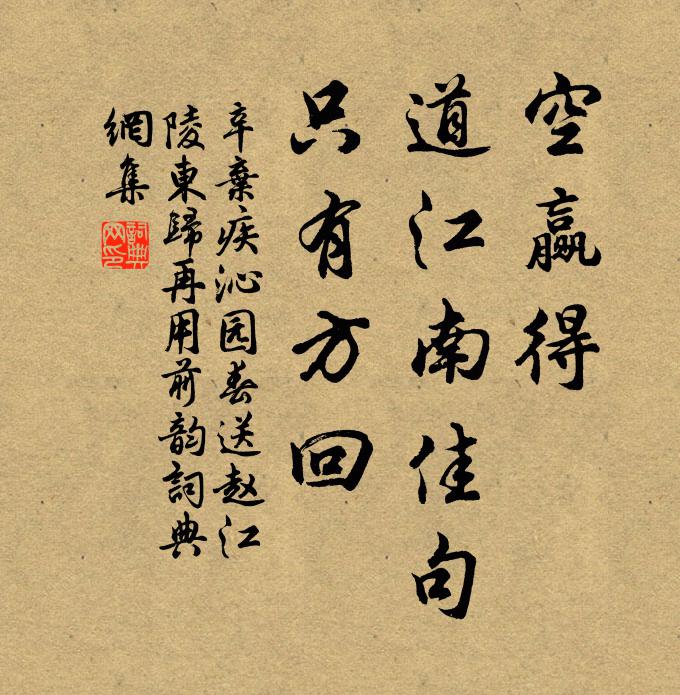 空赢得
道江南佳句
只有方回
辛棄疾沁园春送赵江
陵東歸再用前韵詞典
網集
詞典
网印